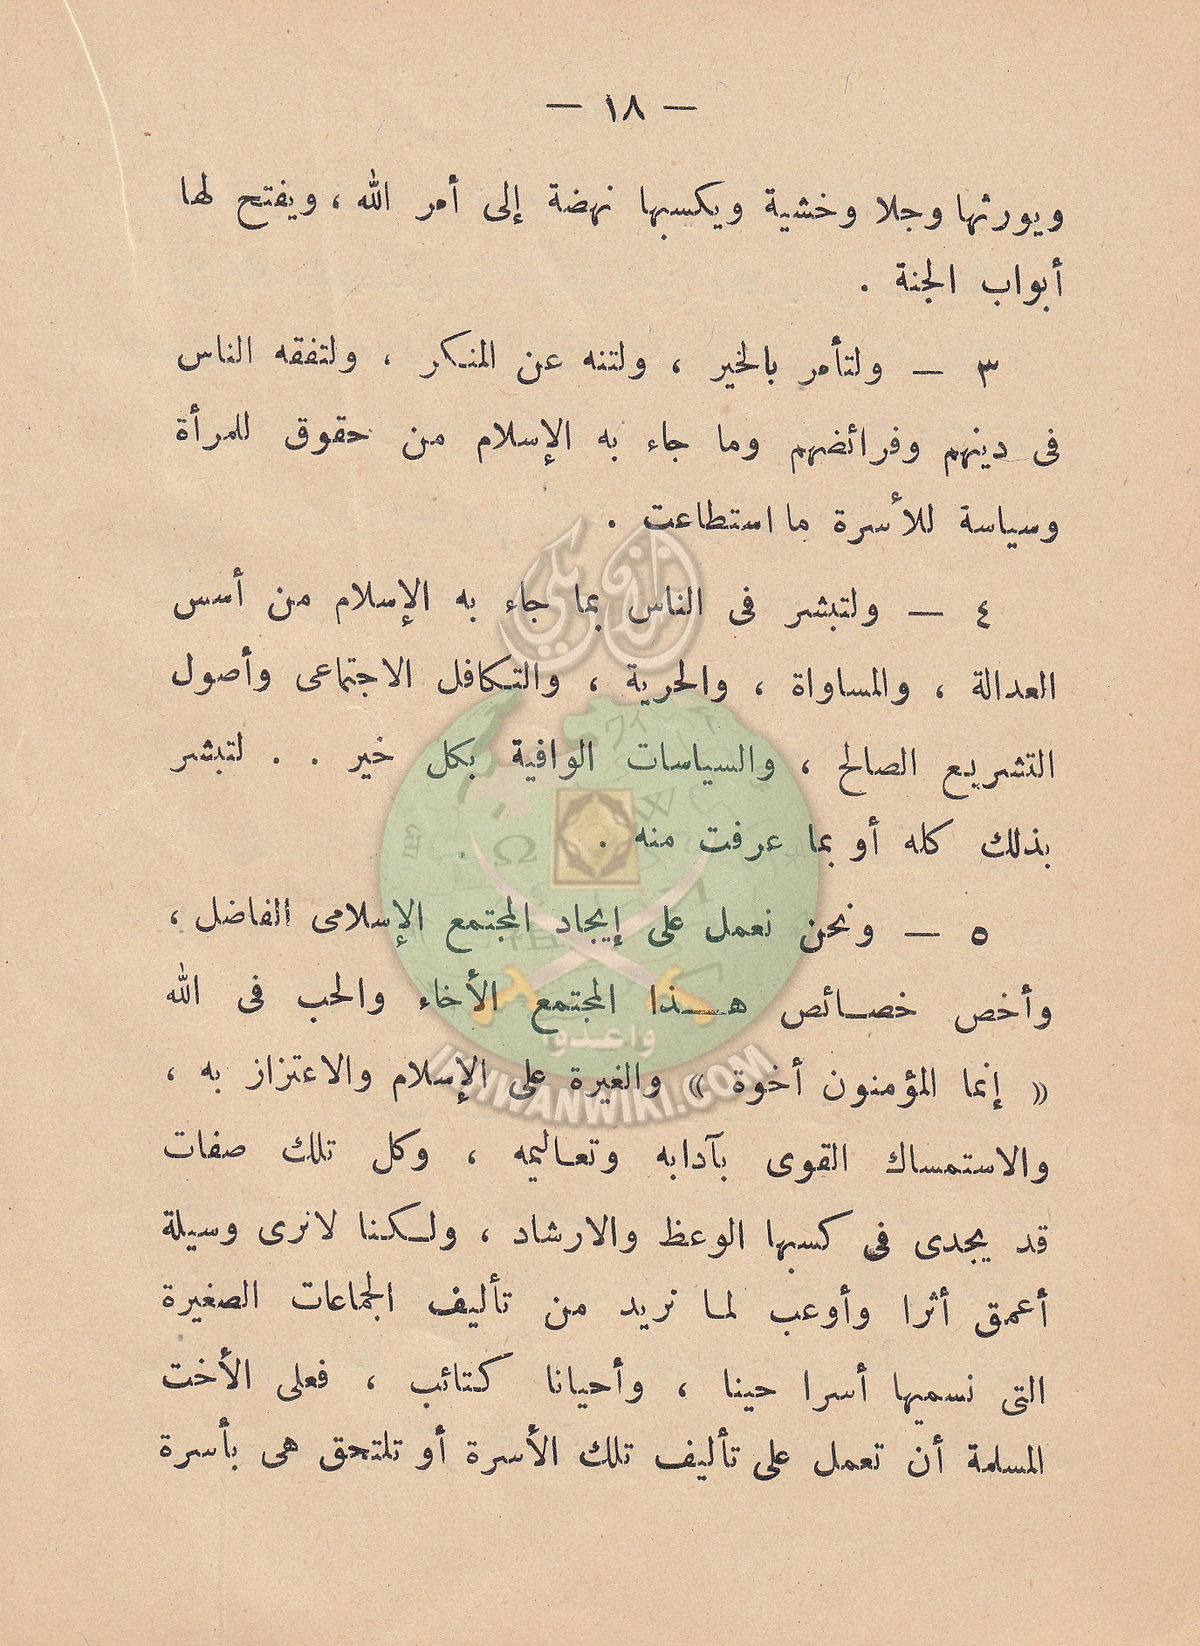 — ١٨ —
ويورثها وجلا وخشية ويكسبها نهضة إلى أمر الله ، ويفتح لها
أبواب الجنة .
٣ — ولتأمر بالخير ، ولتنه عن المنكر ، ولتفقه الناس
فى دينهم وفرائضهم وما جاء به الإسلام من حقوق للمرأة
وسياسة للأسرة ما استطاعت .
٤ — ولتبشر فى الناس بما جاء به الإسلام من أسس
العدالة ، والمساواة ، والحرية ، والتكافل الاجتماعى وأصول
التشريع الصالح ، والسياسات الوافية بكل خير . . لتبشر
بذلك كله أو بما عرفت منه .
٥ — ونحن نعمل على إيجاد المجتمع الإسلامى الفاضل ،
وأخص خصائص هذا المجتمع الأخاء والحب فى الله
« إنما المؤمنون أخوة » والغيرة على الإسلام والاعتزاز به ،
واعدوا
IKHWANWIKI.COM
والاستمساك القوى بآدابه وتعاليمه ، وكل تلك صفات
قد يجدى فى كسبها الوعظ والارشاد ، ولكنا لا نرى وسيلة
أعمق أثرا وأوعب لما نريد من تأليف الجماعات الصغيرة
التى نسميها أسرا حينا ، وأحيانا كتائب ، فعلى الأخت
المسلمة أن تعمل على تأليف تلك الأسرة أو تلتحق هى بأسرة